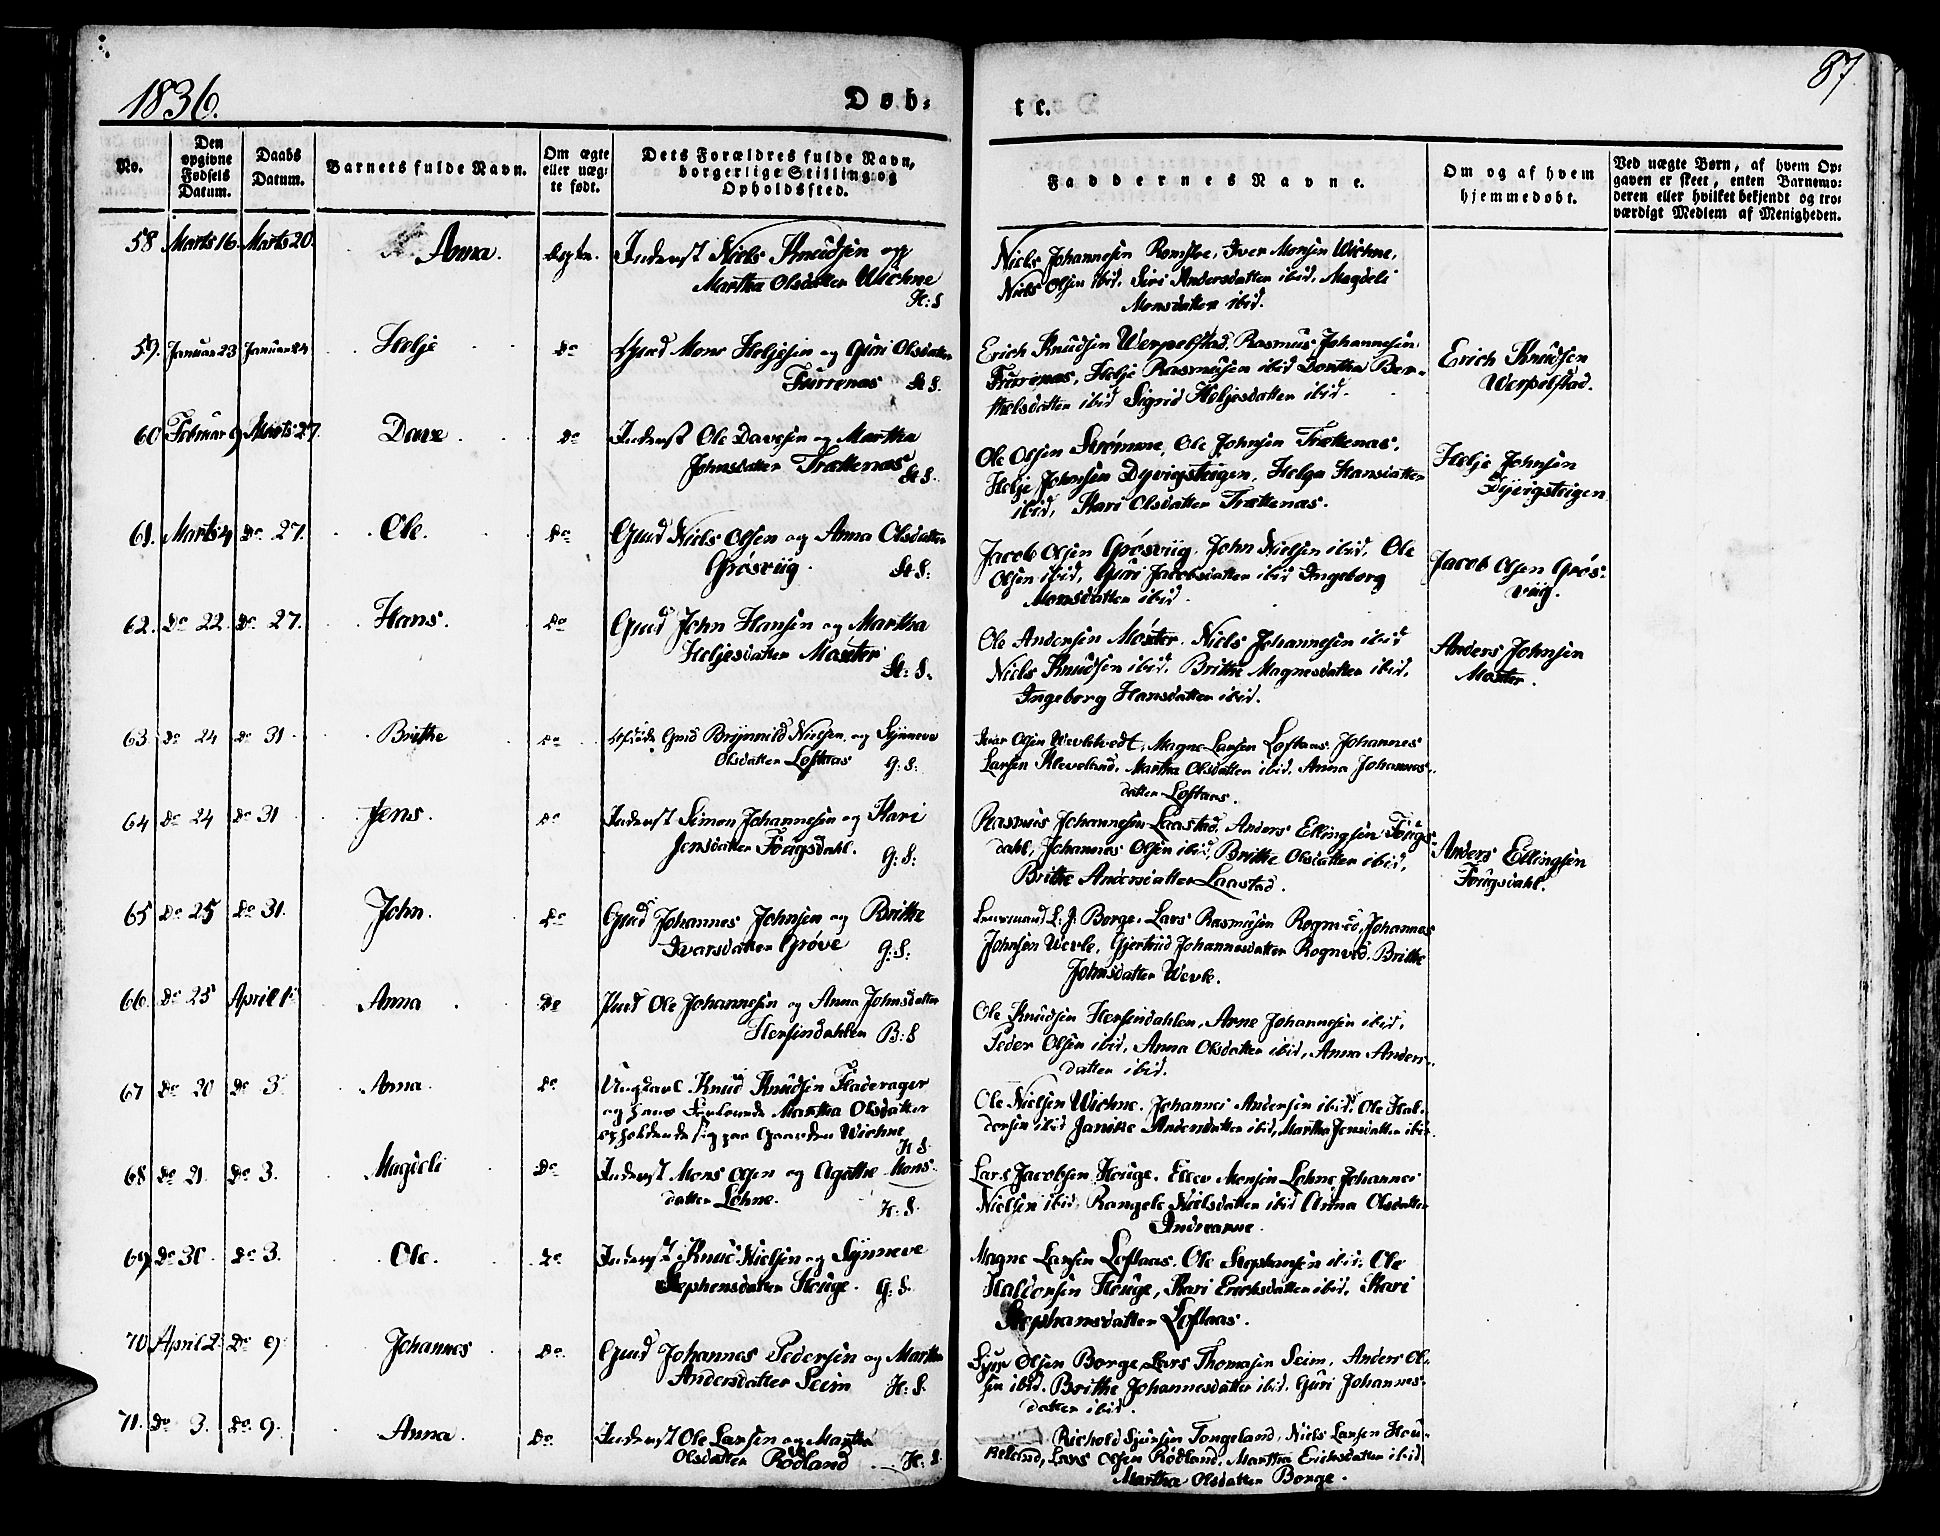 1836.
Døb-
te.
87
No.
Den opgivne Fødsels Datum.
Daabs Datum.
Barnets fulde Navn.
Om ægte eller uægte født.
Dets Forældres fulde Navn, borgerlige Stilling og Opholdssted.
Faddernes Navne.
Om og af hvem hjemmedøbt.
Ved uægte Børn, af hvem Opgaven er skeet, enten Barnemoderen eller hvilket bekjendt og troværdigt Medlem af Menigheden.
58 Marts 16. Marts 20. Anna. Ægte. Inderst Niels Knudsen og
Martha Olsdatter Wichne
H: S
Niels Johannesen Romsloe, Iver Monsen Wichne,
Niels Olsen ibid, Siri Andersdatter ibid, Magdeli
Monsdatter ibid.
59. Januar 23 Januar 24 Helje Do Gmd Mons Heljesen og Guri Olsdatter
Furrenas H S.
Erich Knudsen Werpelstad, Rasmus Johannesen
Furrenas, Helje Rasmusen ibid Dorthea Ber-
thelsdatter ibid Sigrid Heljesdatter ibid.
Erich Knudsen
Werpelstad.
60 Februar 9 Marts 27. Dave Do Inderst Ole Davesen og Martha
Johnsdatter Trættenas H S.
Ole Olsen Strømme, Ole Johnsen Trættenas.
Helje Johnsen Dyvigsteigen, Helga Hansdatter
ibid, Kari Olsdatter Trættenas.
Helje Johnsen
Dyvigsteigen
61. Marts 4 Do 27. Ole. Do Gmd Niels Olsen og Anna Olsdatter
Grøsviig. H S:
Jacob Olsen Grøsviig. John Nielsen ibid. Ole
Olsen ibid, Guri Jacobsdatter ibid Ingeborg
Monsdatter ibid.
Jacob Olsen Grøs-
viig.
62. Do 22. Do 27. Hans. Do Gmd John Hansen og Martha
Heljesdatter Moster
H: S.
Ole Andersen Moster. Niels Johannesen ibid
Niels Knudsen ibid. Brithe Magnesdatter ibid.
Ingeborg Hansdatter ibid.
Anders Johnsen
Moster.
63 Do 24 Do 31 Brithe Do Gmd Brynnild Nielsen og Synneve
Olsdatter Loftaas G: S:
Iver Olsen Wevletvedt, Magne Larsen Loftaas. Johannes
Larsen Kleveland, Martha Olsdatter ibid. Anna Johannes-
datter Loftaas.
64 Do 24 Do 31 Jens. Do Inderst Simon Johannesen og Kari
Jensdatter Fougsdahl. G: S:
Rasmus Johannesen Laastad, Anders Ellingsen Fougs-
dahl, Johannes Olsen ibid, Brithe Olsdatter ibid,
Brithe Andersdatter Laastad.
Anders Ellingsen
Fougsdahl.
65 Do 25 Do 31. John. Do Gmd Johannes Johnsen og Brithe
Ivarsdatter Grøve G: S:
Lensmand L: J: Borge. Lars Rasmusen Rogneö, Johannes
Johnsen Wevle, Gjertrud Johannesdatter Rogneö. Brithe
Johnsdatter Wevle.
66 Do 25 April 1 Anna Do Pmd Ole Johannesen og Anna Johnsdatter
Hersindahlen B: S
Ole Knudsen Hersindahlen, Arne Johannesen ibid,
Peder Olsen ibid, Anna Olsdatter ibid, Anna Anders-
datter ibid.
67 Do 20 Do 3 Anna. Do Ungkarl Knud Knudsen Fladerager
og hans Forlovede Martha Olsdatter
opholdende sig paa Gaarden Wichne
H S
Ole Nielsen Wichne. Johannes Andersen ibid, Ole Hal-
dorsen ibid Janike Andersdatter ibid, Martha Jensdatter ibid.
68 Do 21. Do 3. Magdeli Do Inderst Mons Olsen og Agathe Mons-
datter Lohne. H. S.
Lars Jacobsen Houge. Ellev Monsen Lohne, Johannes
Nielsen ibid, Rangele Nielsdatter ibid Anna Olsdatter
69 Do 30. Do 3. Ole. Do Inderst Knud Nielsen og Synneve
Stephensdatter Houge. G: S.
Magne Larsen Loftaas. Ole Stephansen ibid. Ole
Haldorsen Houge, Kari Erichsdatter ibid, Kari
Stephansdatter Loftaas.
70 April 2 Do 9 Johannes Do. Gmd Johannes Pedersen og Martha
Andersdatter Seim H: S.
Sjur Olsen Borge, Lars Thomasen Seim. Anders Ol-
sen ibid. Brithe Johannesdatter ibid, Guri Johannes-
datter ibid.
71. Do 3. Do 9. Anna. Do Inderst Ole Larsen og Martha
Olsdatter Rödland H. S.
Richold Sjursen Tongeland, Niels Larsen Hou-
keland, Lars Olsen Rödland, Martha Ericksdatter ibid
Martha Olsdatter Borge.